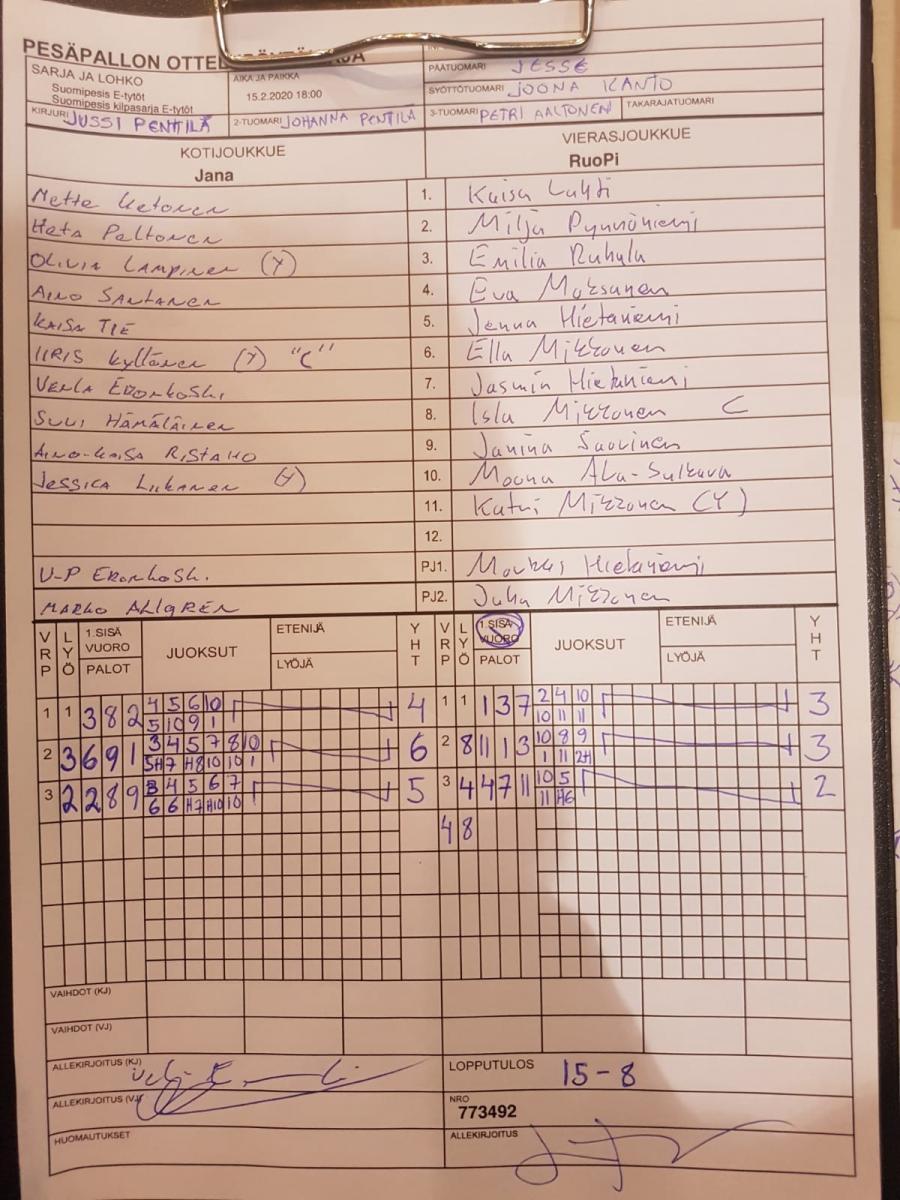 PESÄPALLON OTTEL
SARJA JA LOHKO
Suomipesis E-tytöt
Suomipesis kilpasarja E-tytöt
AIKA JA PAIKKA
15.2.2020 18:00
PÄÄTUOMARI JESSE
SYÖTTÖTUOMARI JOONA KANTO
KIRJURI JUSSI PENTTILÄ 2-TUOMARI JOHANNA PENTILÄ 3-TUOMARI PETRI AALTONEN TAKARAJATUOMARI
KOTIJOUKKUE VIERASJOUKKUE
Jana RuoPi
Mette Ketonen 1. Kaisa Luhti
Heta Peltonen 2. Milja Pynnöniemi
OLIVIA LAMPINEN (Y) 3. Emilia Ruhala
AINO SANTANEN 4. Eva Moksunen
KAISA TIE 5. Jenna Hietaniemi
IIRIS Kyllönen (Y) "C" 6. Ella Mikkonen
VENLA ERONKOSKI 7. Jasmin Hietaniemi
SUVI HÄMÄLÄINEN 8. Isla Mikkonen C
AINO-KAISA RISTAHO 9. Janina Suovinen
JESSICA LIIKANEN (Y) 10. Moona Ala-Sulkava
11. Katri Mikkonen (Y)
12.
V-P ERONKOSKI PJ1. Markus Hietaniemi
MARKO AHLGRÉN PJ2. Juha Mikkonen
VRP LYÖ 1.SISÄ VUORO PALOT JUOKSUT ETENIJÄ LYÖJÄ YHT VRP LYÖ 1.SISÄ VUORO PALOT JUOKSUT ETENIJÄ LYÖJÄ YHT
1 1 3 8 2 4 5 6 10 4 1 1 1 3 7 2 4 10 3
5 10 9 1 10 11 11
2 3 6 9 1 3 4 5 7 8 10 6 2 8 11 1 3 10 8 9 3
5H 7 H8 10 10 1 1 11 2H
3 2 2 8 9 3 4 5 6 7 5 3 4 4 7 11 10 5 2
6 6 H7 H10 10 11 H6
4 8
VAIHDOT (KJ)
VAIHDOT (VJ)
ALLEKIRJOITUS (KJ) LOPPUTULOS 15-8
ALLEKIRJOITUS (VJ) NRO
773492
HUOMAUTUKSET ALLEKIRJOITUS